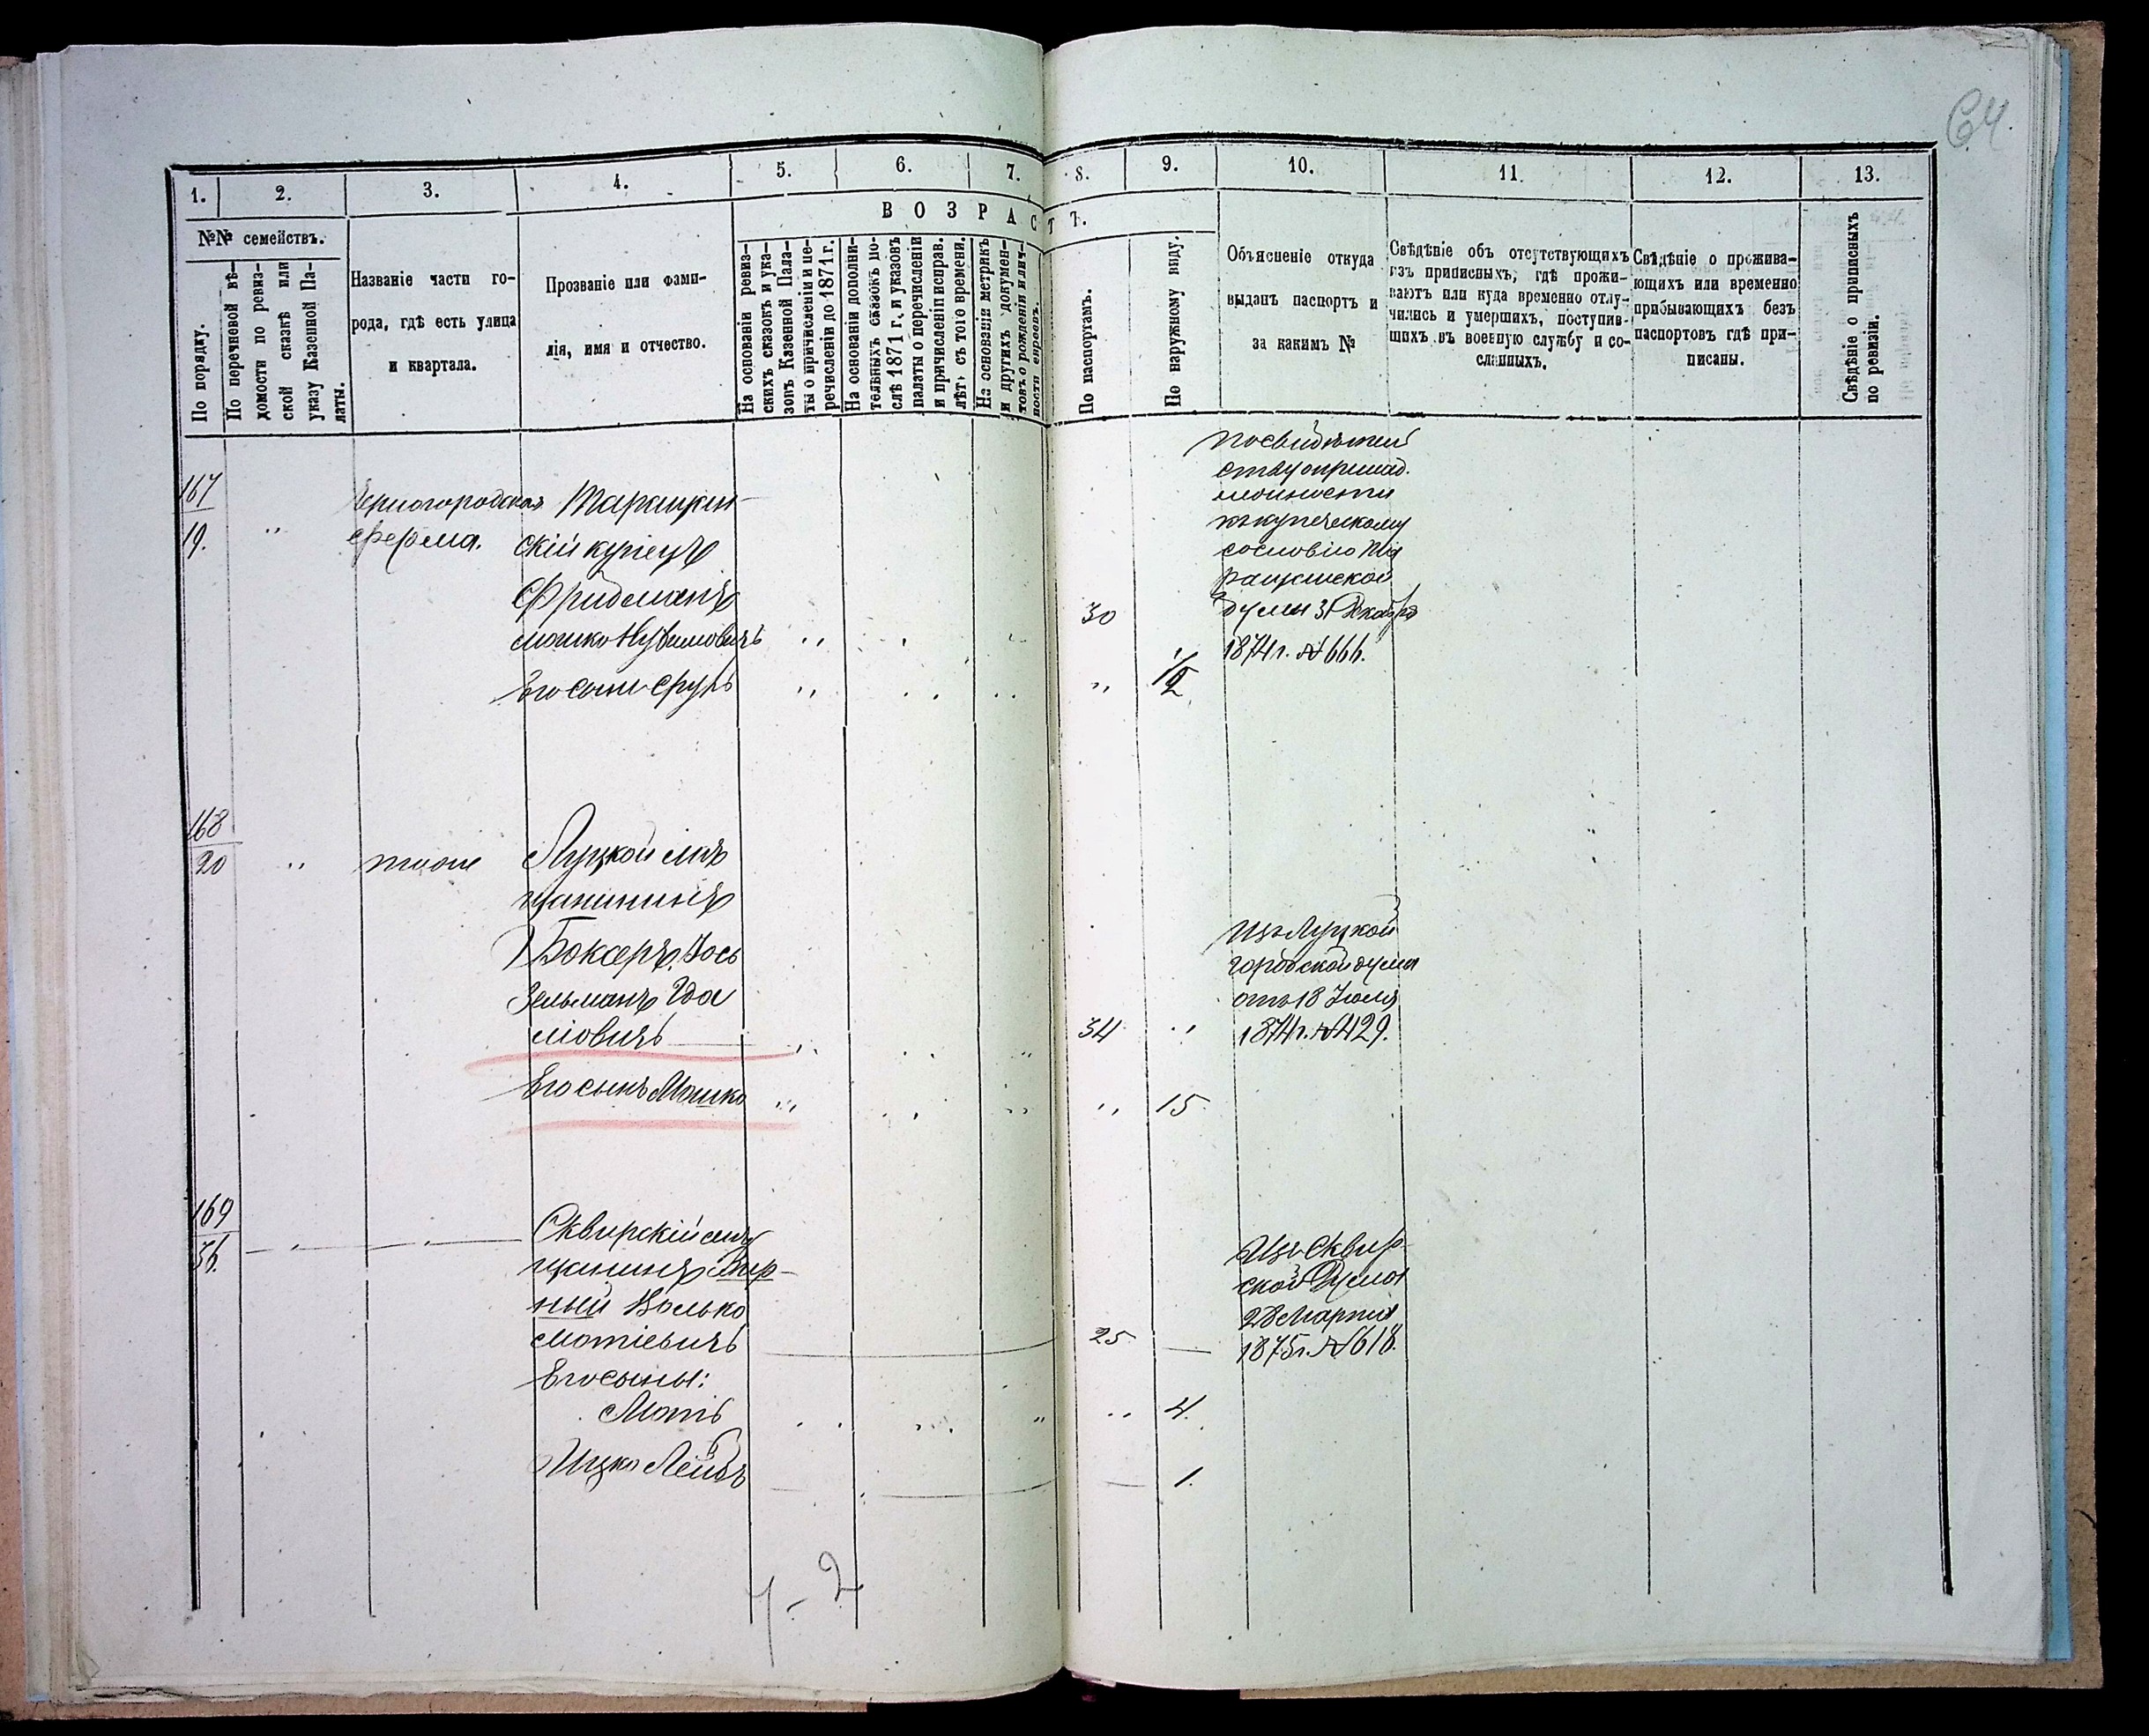 64.
1. 2. 3. 4. 5. 6. 7. 8. 9. 10. 11. 12. 13.
№№ семействъ.
По порядку.
По перечневой вѣ-
домости по ревиз-
ской сказкѣ или
указу Казенной Па-
латы.
Названіе части го-
рода, гдѣ есть улица
и квартала.
Прозваніе или фами-
лія, имя и отчество.
ВОЗРАСТЪ.
На основаніи ревиз-
скихъ сказокъ и ука-
зовъ Казенной Пала-
ты о причисленіи и пе-
речисленіи до 1871 г.
На основаніи дополни-
тельныхъ сказокъ по-
слѣ 1871 г. и указовъ
палаты о перечисленіи
и причисленіи исправ.
лѣтъ съ того времени.
На основаніи метрикъ
и другихъ докумен-
товъ о рожденіи и лич-
ности евреевъ.
По паспортамъ.
По наружному виду.
Объясненіе откуда
выданъ паспортъ и
за какимъ №
Свѣдѣніе объ отсутствующихъ
изъ приписныхъ, гдѣ прожи-
ваютъ или куда временно отлу-
чились и умершихъ, поступив-
шихъ въ военную службу и со-
сланныхъ.
Свѣдѣніе о прожива-
ющихъ или временно
прибывающихъ безъ
паспортовъ гдѣ при-
писаны.
Свѣдѣніе о приписныхъ
по ревизіи.
167
19.
Черногородская
ферма.
Таращан-
скій купецъ
Фридманъ
Мошко Нухимовичъ
Его сынъ Сруль
30
1/2
По свидѣтель
ству о принад.
лежности
къ купеческому
сословію Та
ращанской
думы 31 Декабря
1874 г. № 666.
168
20
тоже
Луцкой мѣ
щанинъ
Боксеръ, Йось
Зельманъ Гда
ліовичъ
34
Изъ Луцкой
городской думы
отъ 18 Іюля
1874 г. № 429.
Его сынъ Мошко
15
169
36.
Сквирскій мѣ
щанинъ Мир-
ный Волько
Мотіевичъ
25
Изъ Сквир-
ской Думы
28 Марта
1875 г. № 618.
Его сыны:
Моть
4.
Ицко Лейбъ
1.
7-2